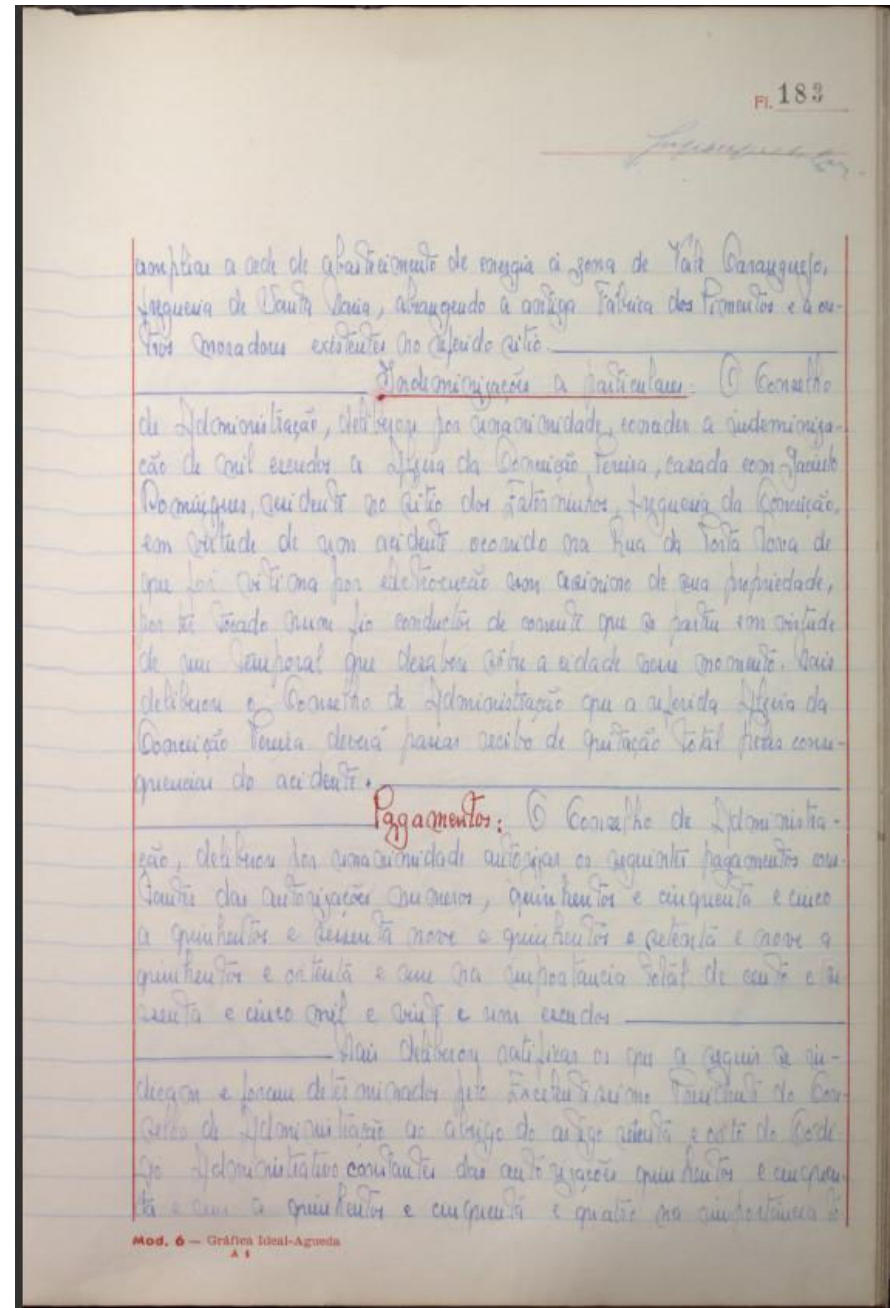 Fl. 183
ampliar a rede de abastecimento de energia à zona de Vale Caranguejo,
freguesia de Santa Maria, abrangendo a antiga Fábrica dos Pimentos e a ou-
tros moradores existentes no referido sitio.
Indeminizações a particulares: O Conselho
de Administração, deliberou por unanimidade, conceder a indeminiza-
ção de mil escudos a da Conceição Pereira, casada com Jacinto
Domingues, residente no sitio dos , freguesia da Conceição,
em virtude de um acidente ocorrido na Rua da Porta Nova de
que foi vitima por electrocução um asinino de sua propriedade,
por ter tocado num fio conductor de corrente que se partiu em virtude
de um temporal que desabou sôbre a cidade nesse momento. Mais
deliberou o Conselho de Administração que a referida da
Conceição Pereira deverá passar recibo de quitação total pelas conse-
quencias do acidente.
Pagamentos: O Conselho de Administra-
ção, deliberou por unanimidade autorizar os seguintes pagamentos cons-
tantes das autorizações numeros, quinhentos e cinquenta e cinco
a quinhentos e sessenta nove e quinhentos e setenta e nove a
quinhentos e oitenta e um na importancia total de cento e se
ssenta e cinco mil e vinte e um escudos
Mais deliberou ratificar os que a seguir se in-
dicam e foram determinados pelo Excelentissimo Presidente do Con-
selho de Administração ao abrigo do artigo setenta e oito do Codi-
go Administrativo constantes das autorizações quinhentos e cinquen-
ta e um a quinhentos e cinquenta e quatro na importancia to-
Mod. 6 — Gráfica Ideal-Agueda
A 4